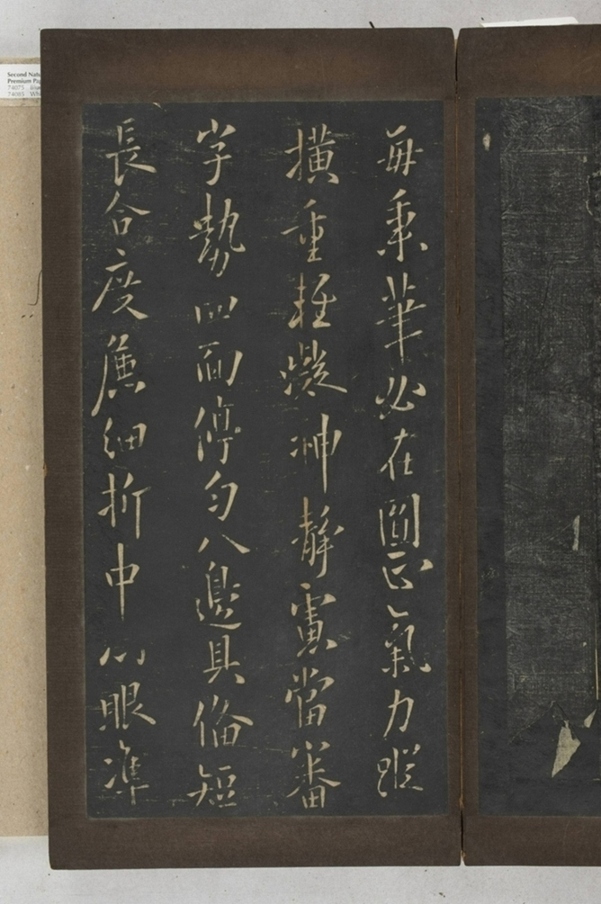 每秉筆必在圓正氣力蹤
撗重輕凝神静慮當審
字勢四面停勻八邊具俻短
長合度麄細折中心眼准
Second Natu
Premium Pa